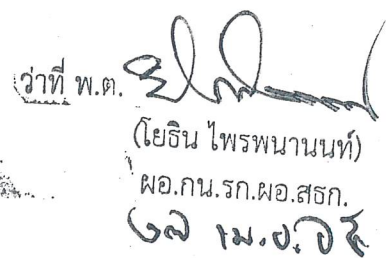 ว่าที่ พ.ต.
(โยธิน ไพรพนานนท์)
ผอ.กน.รก.ผอ.สธก.
เม.ย.